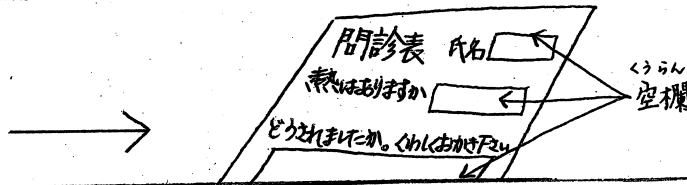 問診表 氏名
熱はありますか
どうされましたか。くわしくおかき下さい
くうらん
空欄